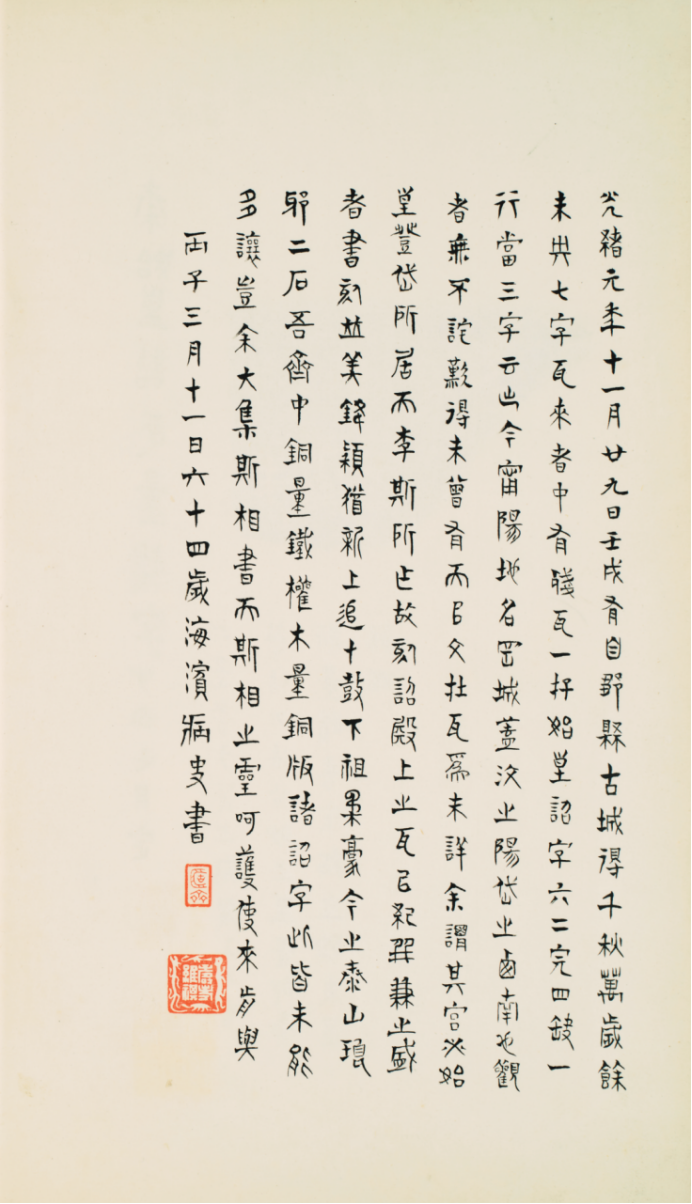 光緒元年十一月廿九日壬戌有自鄒縣古城得千秋萬歲餘
未央七字瓦來者中有殘瓦一存始皇詔字六二完四缺一
行當三字云出今甯陽地名罡城蓋汶之陽岱之鹵南也觀
者無不詫歎得未曾有而㠯文在瓦爲未詳余謂其宮必始
皇登岱所居而李斯所止故刻詔殿上之瓦㠯紀幷兼之盛
者書刻竝美鋒穎猶新上追十鼓下祖柔豪今之泰山琅
邪二石吾齊中銅量鐵權木量銅版諸詔字此皆未能
多讓豈余大集斯相書而斯相之靈呵護使來歸與
丙子三月十一日六十四歲海濱病史書